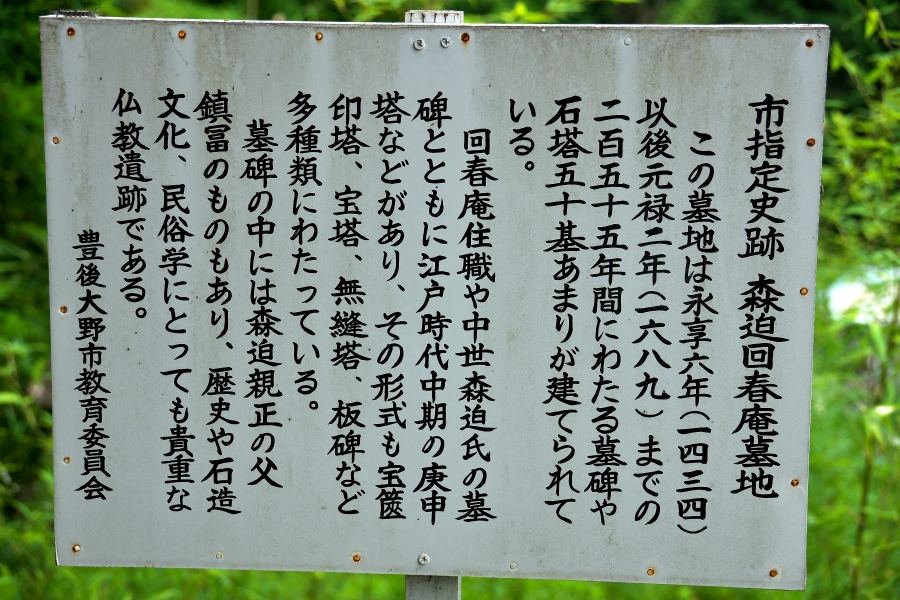 市指定史跡 森迫回春庵墓地
この墓地は永享六年(一四三四)
以後元禄二年(一六八九)までの
二百五十五年間にわたる墓碑や
石塔五十基あまりが建てられて
いる。
回春庵住職や中世森迫氏の墓
碑とともに江戸時代中期の庚申
塔などがあり、その形式も宝篋
印塔、宝塔、無縫塔、板碑など
多種類にわたっている。
墓碑の中には森迫親正の父
鎮冨のものもあり、歴史や石造
文化、民俗学にとっても貴重な
仏教遺跡である。
豊後大野市教育委員会